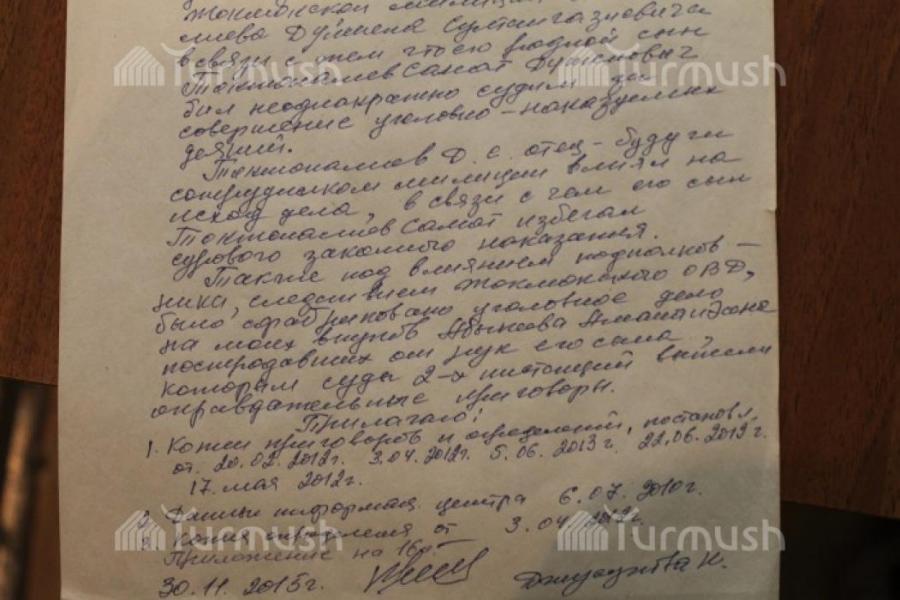 Токмокской милиции
лиева Дуйшена Султангазиевича
в связи с тем что его родной сын
Токтоналиев Самат Дуйшенович
был неоднократно судим за
совершение уголовно-наказуемых
деяний.
Токтоналиев Д. С. отец - будучи
сотрудником милиции влиял на
исход дела, в связи с чем его сын
Токтоналиев Самат избегал
сурового законного наказания.
Также под влиянием подполков-
ника, следствием Токмокского ОВД,
было сфабриковано уголовное дело
на моих внуков
пострадавших от рук его сына
которым суды 2-х инстанций вынесли
оправдательные приговоры.
Прилагаю:
1. Копии приговоров и определений, постановл.
от. 20.02.2012г. 3.04.2012г. 5.06.2013г. 22.06.2012г.
17. мая 2012г.
2. Данные информац. центра 6.07.2010г.
3. Копия определения от 3.04.2012г.
Приложение на 16
30.11.2015г.
Turmush
Turmush
Turmush
Turmush